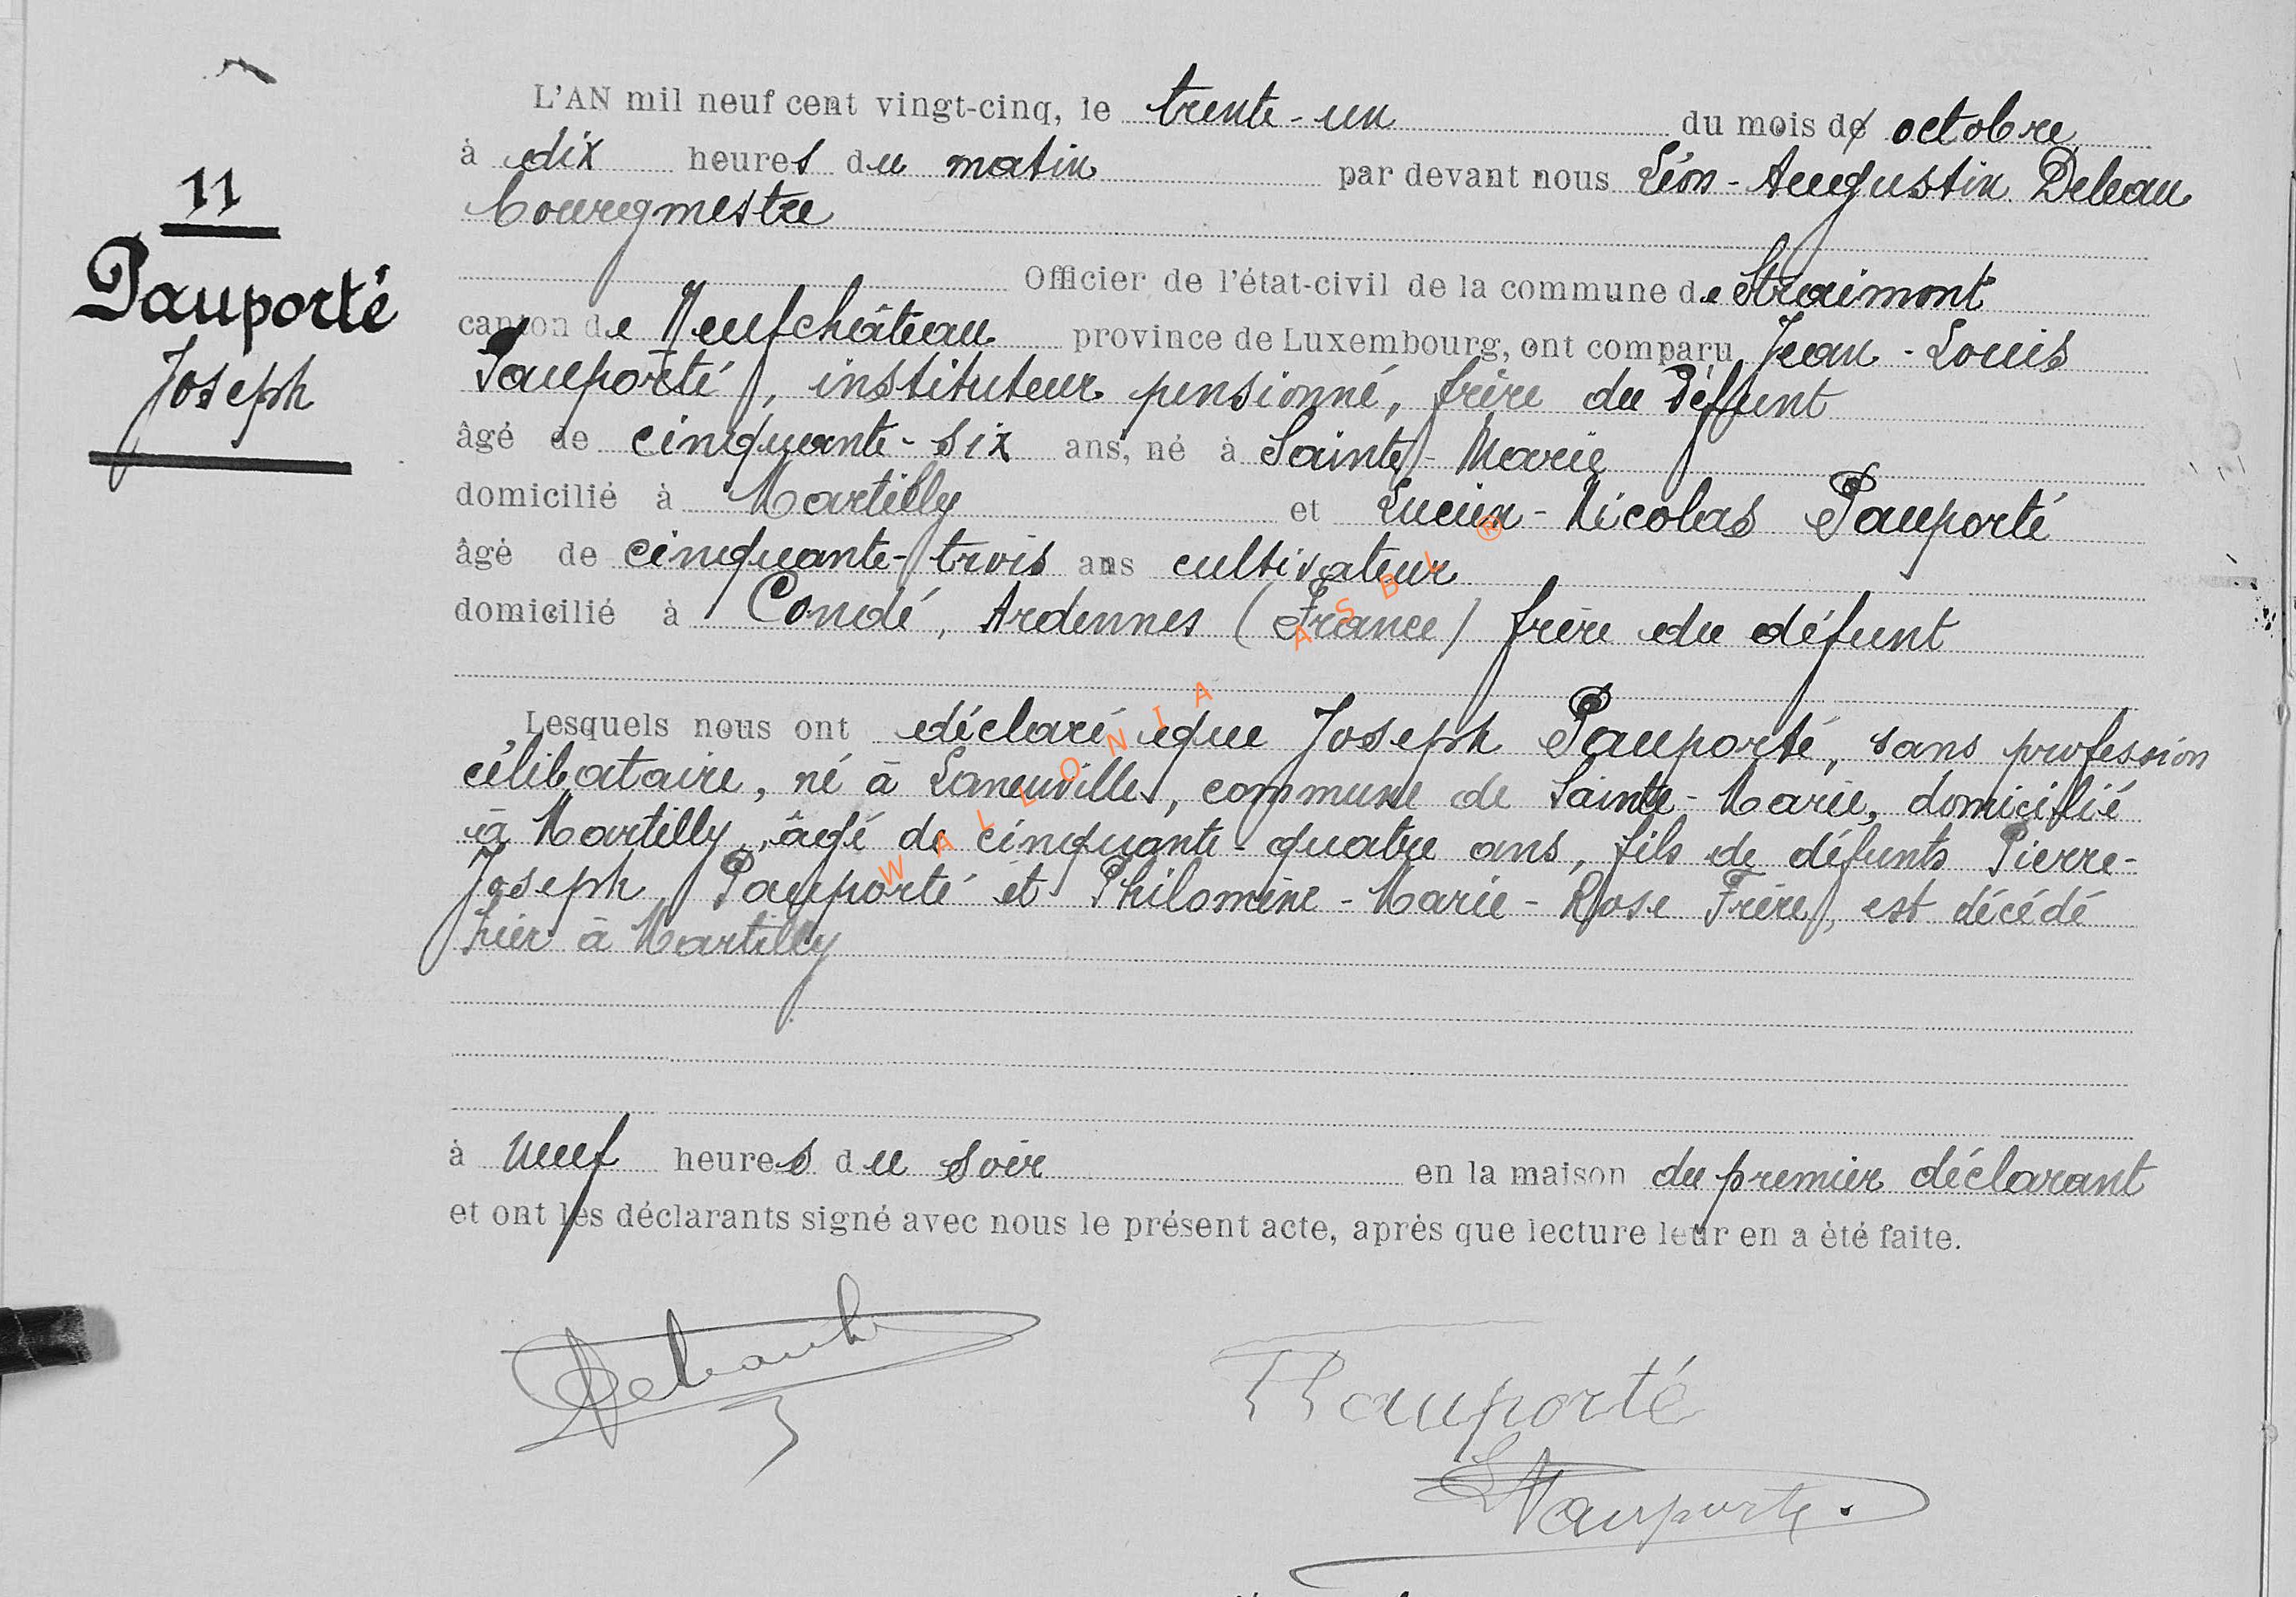 11
Pauporté
Joseph
L'AN mil neuf cent vingt-cinq, le trente-un du mois d' octobre
à dix heures du matin par devant nous Léon-Augustin Deleau
bourgmestre
Officier de l'état-civil de la commune de Straimont
canton de Neufchâteau province de Luxembourg, ont comparu Jean-Louis
Pauporté, instituteur pensionné, frère du Défunt
âgé de cinquante-six ans, né à Sainte-Marie
domicilié à Martilly et Lucien-Nicolas Pauporté
âgé de cinquante-trois ans cultivateur
domicilié à Condé, Ardennes (France) frère du défunt
Lesquels nous ont déclaré que Joseph Pauporté, sans profession
célibataire, né à Laneuville, commune de Sainte-Marie, domicilié
à Martilly, âgé de cinquante-quatre ans, fils de défunts Pierre-
Joseph Pauporté et Philomène-Marie-Rose Frère, est décédé
hier à Martilly
à neuf heures du soir en la maison du premier déclarant
et ont les déclarants signé avec nous le présent acte, après que lecture leur en a été faite.
Pauporté
L Pauporté.
WALLONIA ASBL ®